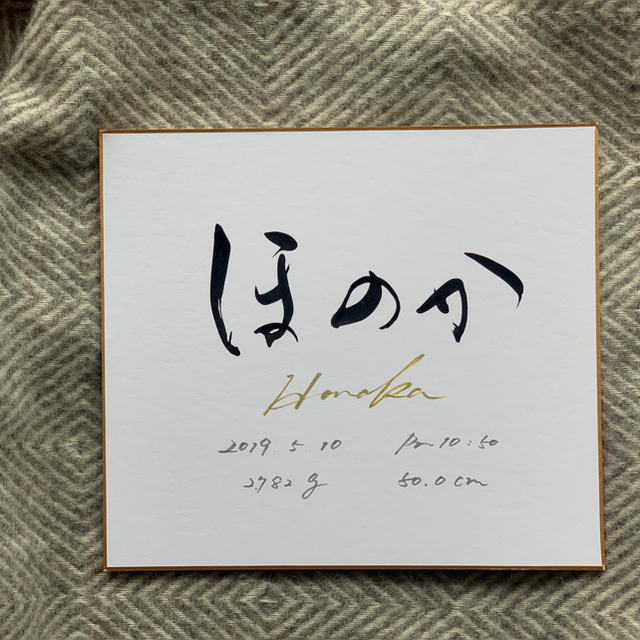 ほのか
Honoka
2019. 5. 10 Pm 10:50
2782 g 50.0 cm